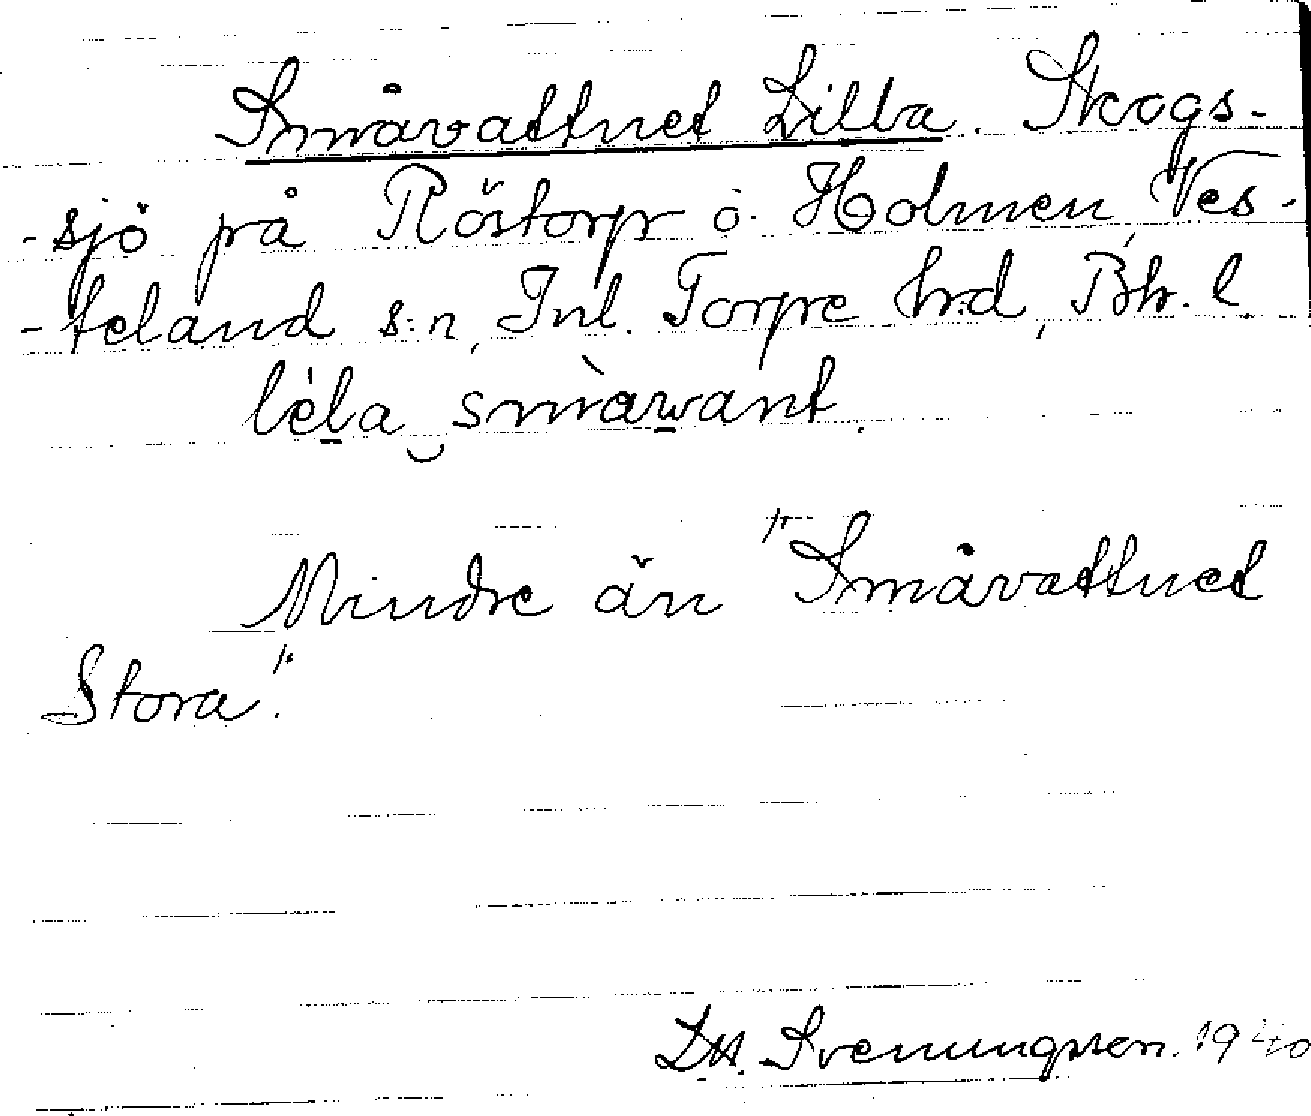 Småvattnet Lilla. Skogs-
-sjö på Röstorp o. Holmen, Ves-
-teland s:n, Inl. Torpe h:d, Bh. l.
lèla smàwant.
Mindre än "Småvattnet
Stora".
Svenungsson. 1940